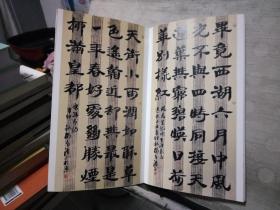 畢竟西湖六月中風
光不與四時同接天
蓮葉無窮碧暎日荷
華別樣紅
天街小雨潤如酥草
色遙看近却無最是
一年春好處絕勝煙
柳滿皇都